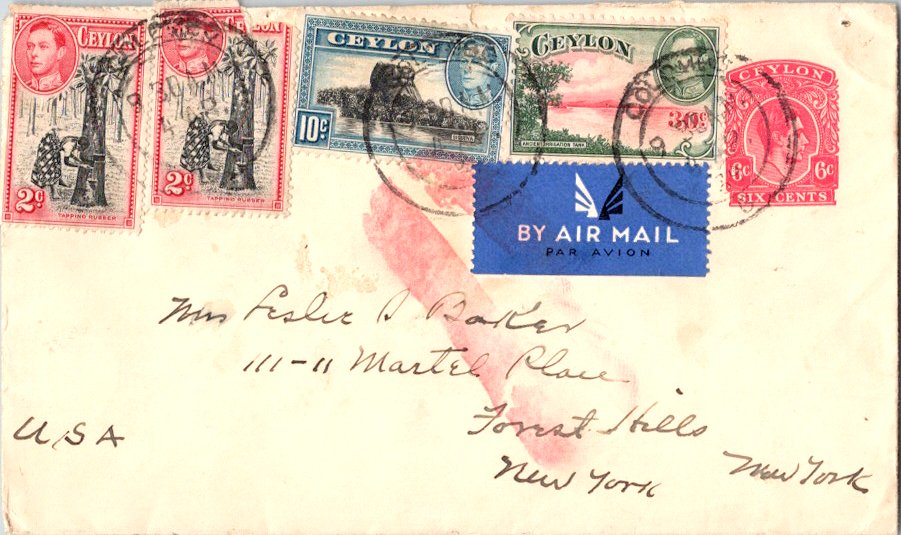 CEYLON
2c
TAPPING RUBBER
CEYLON
2c
TAPPING RUBBER
CEYLON
10c
CEYLON
30c
ANCIENT IRRIGATION TANK
CEYLON
6c 6c
SIX CENTS
BY AIR MAIL
PAR AVION
Mrs Leslie S Barker
111-11 Martel Place
Forest Hills
New York
New York
USA